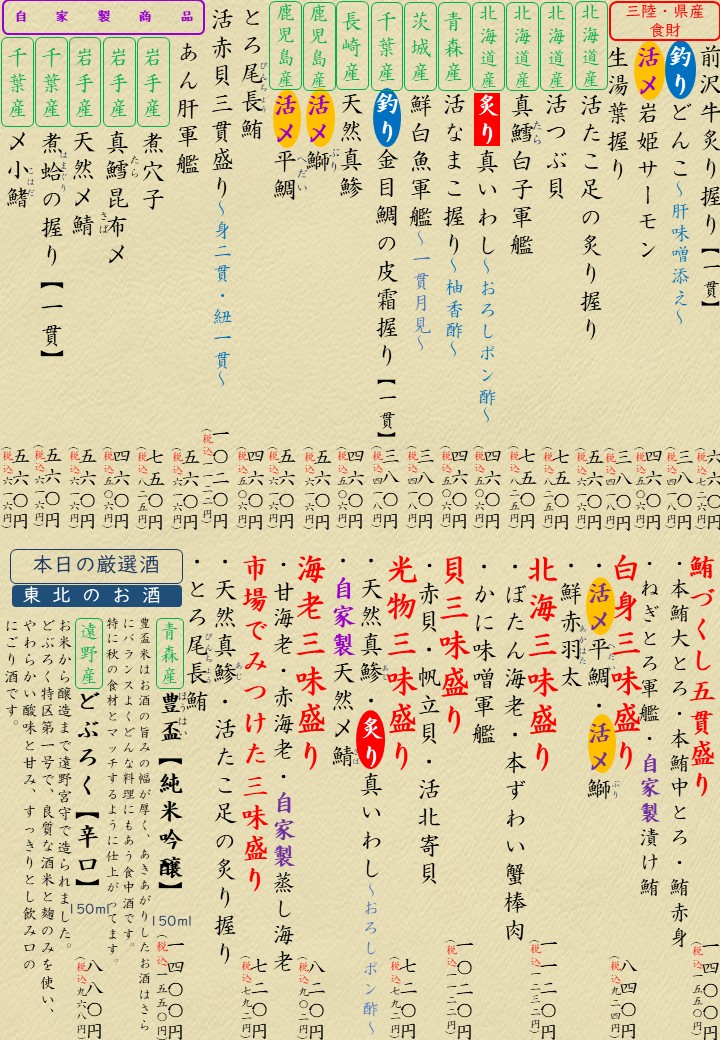 三陸・県産
食財
前沢牛炙り握り【一貫】 六六〇円（税込七二六円）
釣りどんこ～肝味噌添え～ 三八〇円（税込四一八円）
活〆岩姫サーモン 四六〇円（税込五〇六円）
生湯葉握り 三八〇円（税込四一八円）
北海道産 活たこ足の炙り握り 五六〇円（税込六一六円）
北海道産 活つぶ貝 七五〇円（税込八二五円）
北海道産 真鱈白子軍艦 七五〇円（税込八二五円）
たら
北海道産 炙り真いわし～おろしポン酢～ 四六〇円（税込五〇六円）
青森産 活なまこ握り～柚香酢～ 四六〇円（税込五〇六円）
茨城産 鮮白魚軍艦～一貫月見～ 三八〇円（税込四一八円）
千葉産 釣り金目鯛の皮霜握り【一貫】 三八〇円（税込四一八円）
長崎産 天然真鯵 四六〇円（税込五〇六円）
鹿児島産 活〆鰤 五六〇円（税込六一六円）
ぶり
鹿児島産 活〆平鯛 四六〇円（税込五〇六円）
へだい
とろ尾長鮪 四六〇円（税込五〇六円）
びんちょう
活赤貝三貫盛り～身二貫・紐一貫～ 一〇二〇円（税込一一二二円）
あん肝軍艦 五六〇円（税込六一六円）
自家製商品
岩手産 煮穴子 七五〇円（税込八二五円）
岩手産 真鱈昆布〆 四六〇円（税込五〇六円）
たら
岩手産 天然〆鯖 五六〇円（税込六一六円）
さば
千葉産 煮蛤の握り【一貫】 五六〇円（税込六一六円）
はまぐり
千葉産 〆小鰭 五六〇円（税込六一六円）
こはだ
鮪づくし五貫盛り 一四〇〇円（税込一五四〇円）
・本鮪大とろ・本鮪中とろ・鮪赤身
・ねぎとろ軍艦・自家製漬け鮪
白身三味盛り 八四〇円（税込九二四円）
・活〆平鯛・活〆鰤
へだい ぶり
・鮮赤羽太
あかはた
北海三味盛り 一一二〇円（税込一二三二円）
・ぼたん海老・本ずわい蟹棒肉
・かに味噌軍艦
貝三味盛り 一〇二〇円（税込一一二二円）
・赤貝・帆立貝・活北寄貝
光物三味盛り 七二〇円（税込七九二円）
・天然真鯵・炙り真いわし～おろしポン酢～
あじ
・自家製天然〆鯖
さば
海老三味盛り 八二〇円（税込九〇二円）
・甘海老・赤海老・自家製蒸し海老
市場でみつけた三味盛り 七二〇円（税込七九二円）
・天然真鯵・活たこ足の炙り握り
あじ
・とろ尾長鮪
びんちょう
本日の厳選酒
東北のお酒
青森産 豊盃【純米吟醸】 150ml 一四〇〇円（税込一五四〇円）
ほうはい
豊盃米はお酒の旨みの幅が厚く、あきあがりしたお酒はさら
にバランスよくどんな料理にもあう食中酒です。
特に秋の食材とマッチするように仕上がってます。
遠野産 どぶろく【辛口】 150ml 八八〇円（税込九六八円）
お米から醸造まで遠野宮守で造られました。
どぶろく特区第一号で、良質な酒米と麹のみを使い、
やわらかい酸味と甘み、すっきりとし飲み口の
にごり酒です。